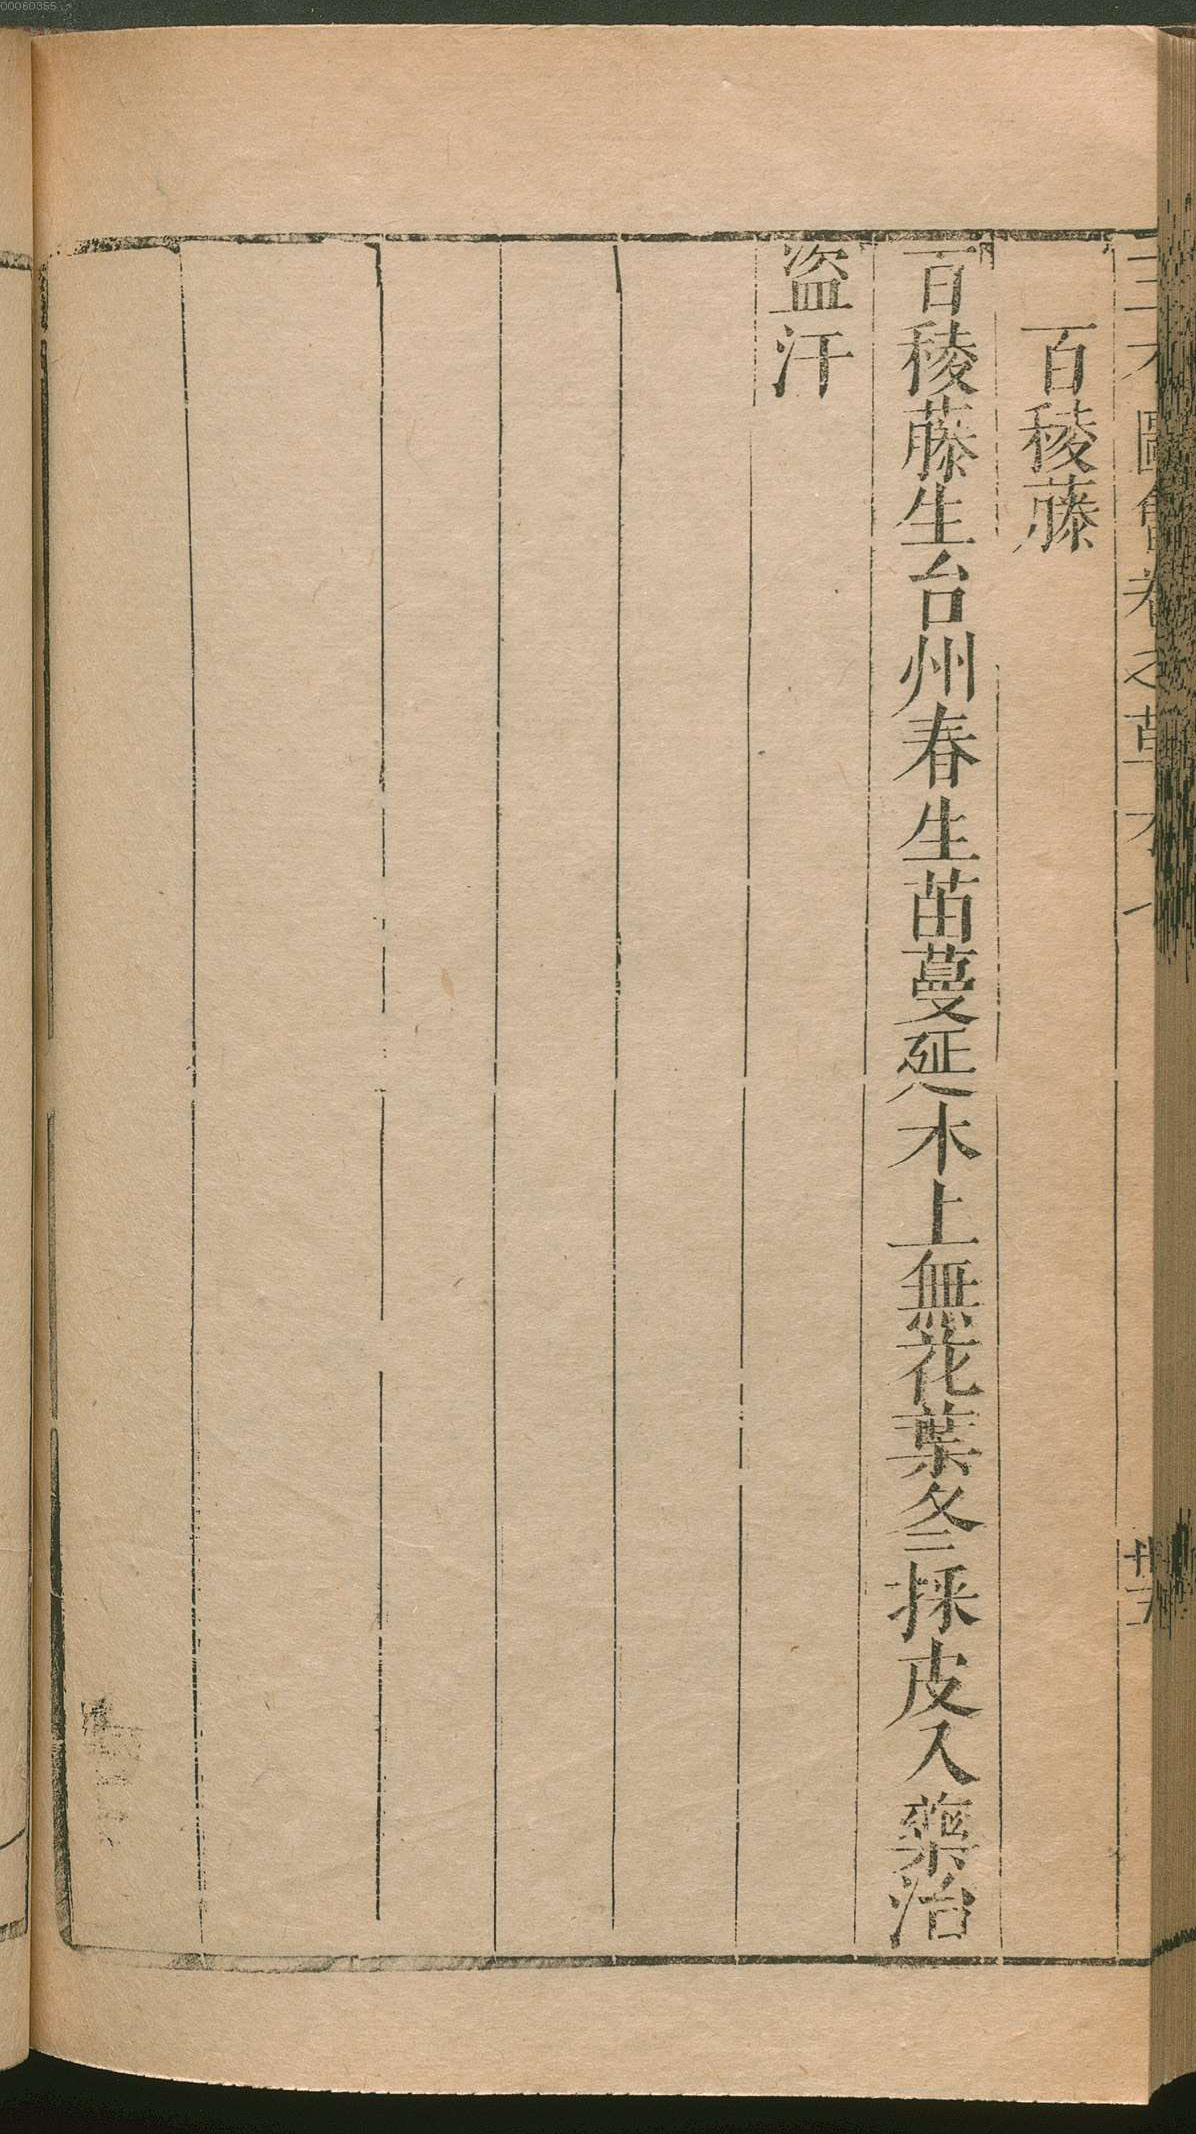 三才圖會卷之草木七
百稜藤
百稜藤生台州春生苗蔓延木上無花葉冬採皮入藥治
盜汗
00060355